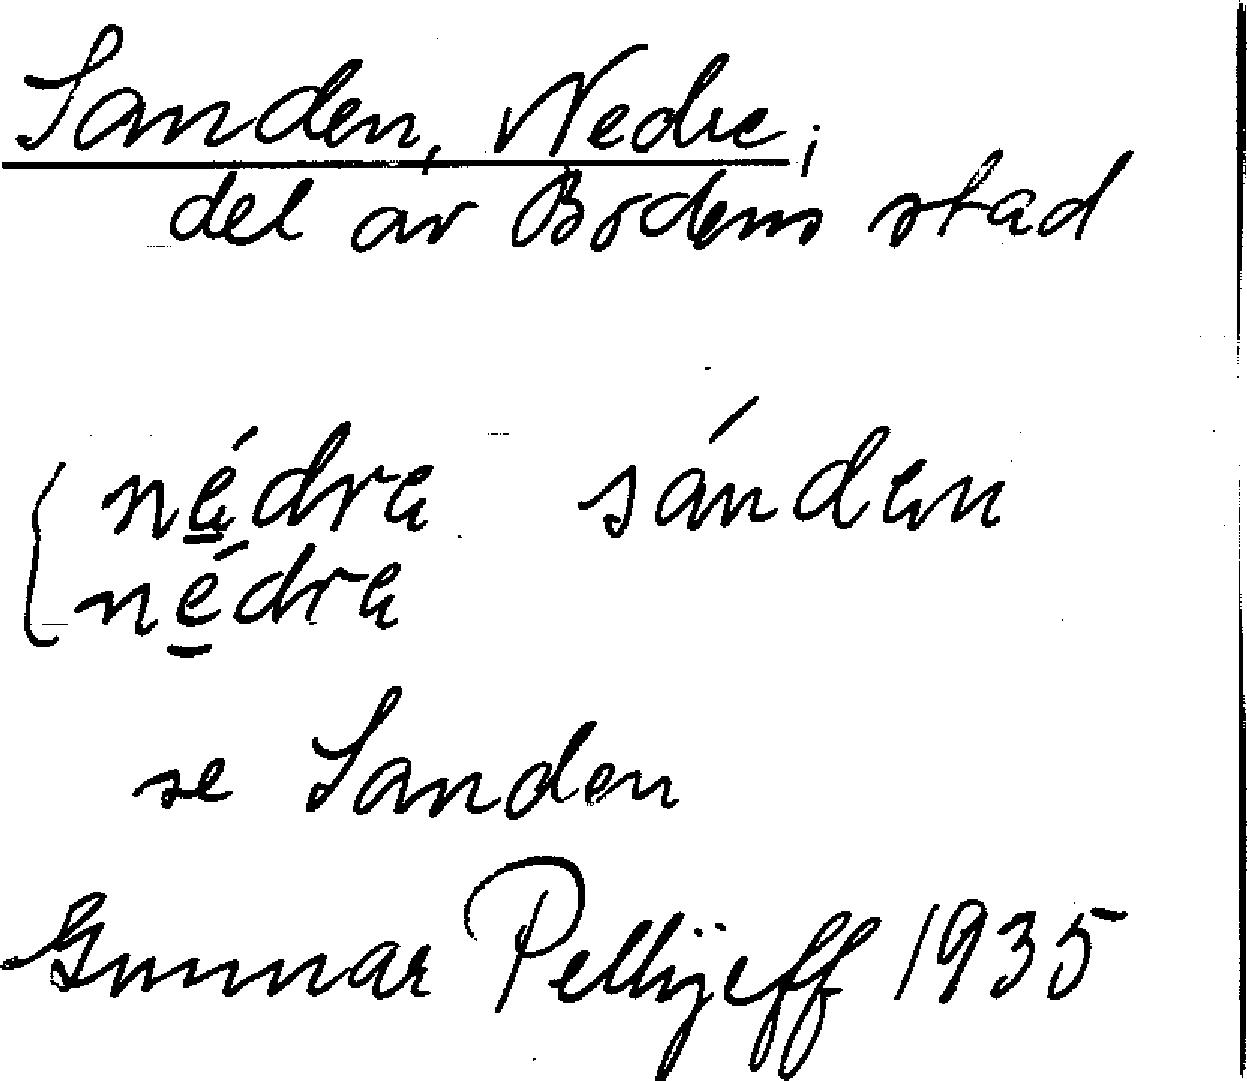 Sanden, Nedre;
del av Bodens stad
nédra sánden
nédra
se Sanden
Gunnar Pellijeff 1935